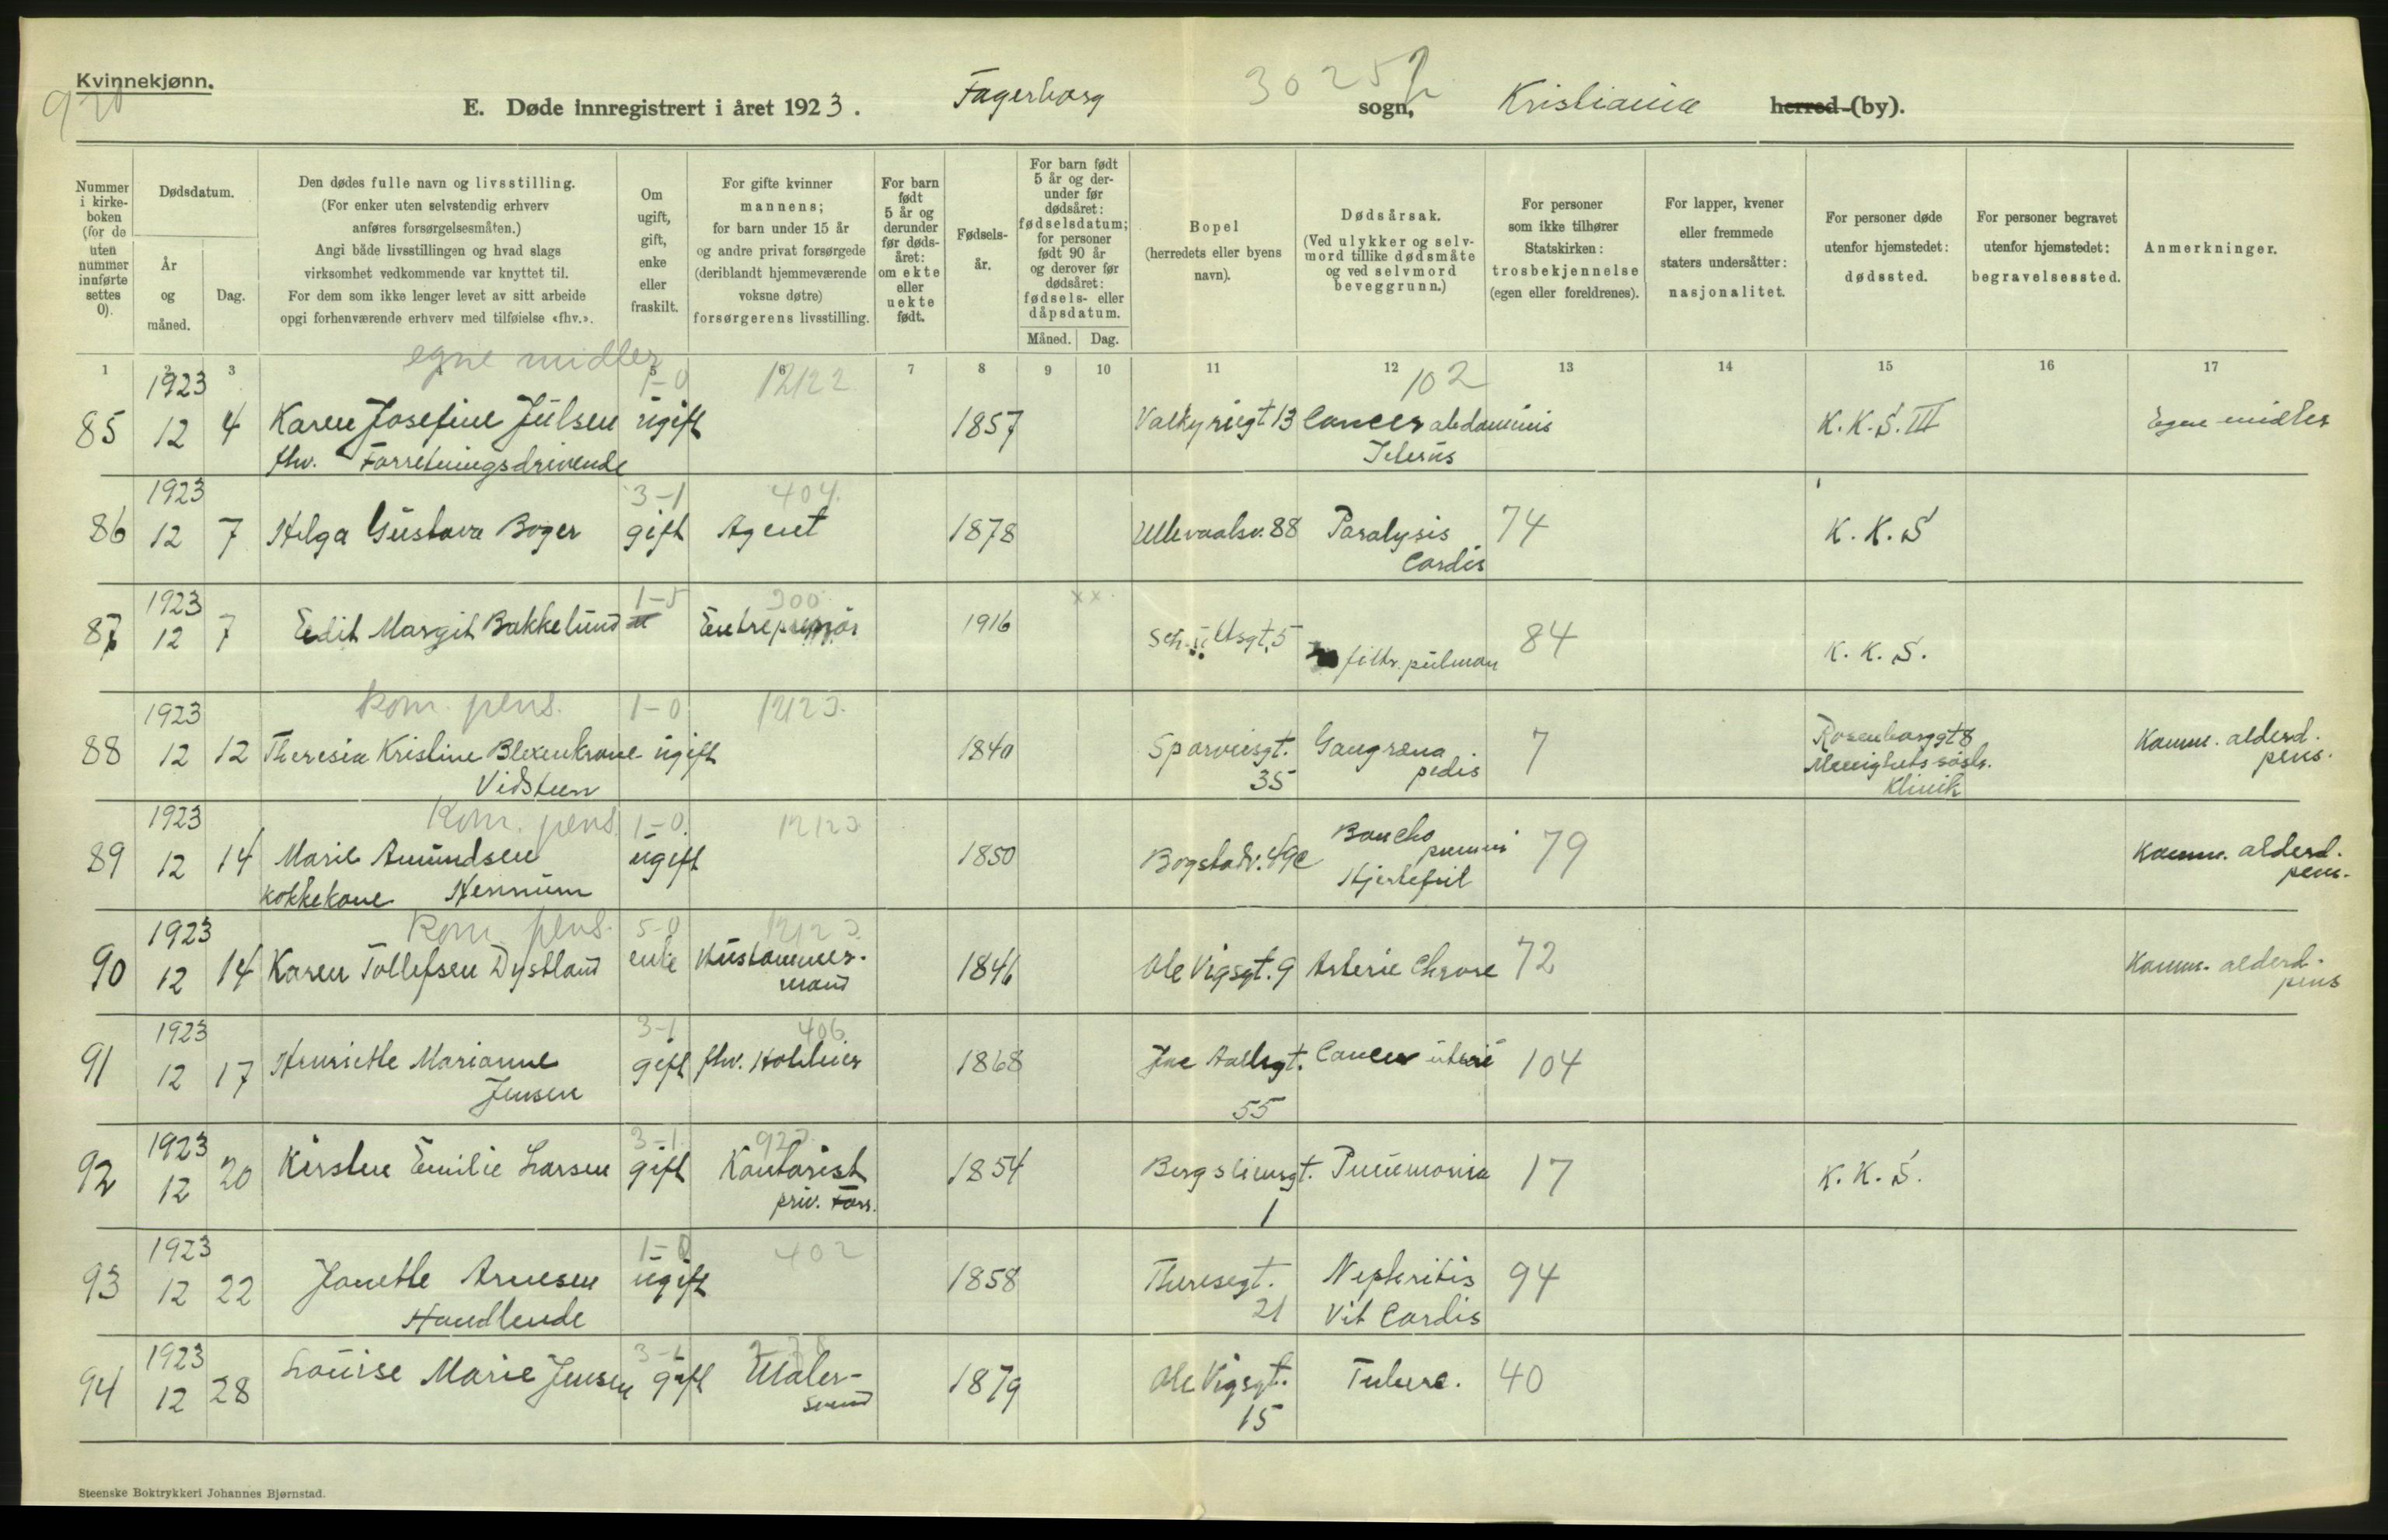 Kvinnekjønn.
920
E. Døde innregistrert i året 1923.
Fagerborg sogn,
3025
Kristiania herred (by).
Nummer i kirkeboken (for de uten nummer innførte settes 0).
Dødsdatum.
År og måned.
Dag.
Den dødes fulle navn og livsstilling.
(For enker uten selvstendig erhverv anføres forsørgelsesmåten.)
Angi både livsstillingen og hvad slags virksomhet vedkommende var knyttet til.
For dem som ikke lenger levet av sitt arbeide opgi forhenværende erhverv med tilføielse «fhv.».
Om ugift, gift, enke eller fraskilt.
For gifte kvinner mannens; for barn under 15 år og andre privat forsørgede (deriblandt hjemmeværende voksne døtre) forsørgerens livsstilling.
For barn født 5 år og derunder før dødsåret: om ekte eller uekte født.
Fødselsår.
For barn født 5 år og derunder før dødsåret: fødselsdatum; for personer født 90 år og derover før dødsåret: fødsels- eller dåpsdatum.
Måned. Dag.
Bopel (herredets eller byens navn).
Dødsårsak. (Ved ulykker og selvmord tillike dødsmåte og ved selvmord beveggrunn.)
For personer som ikke tilhører Statskirken: trosbekjennelse (egen eller foreldrenes).
For lapper, kvener eller fremmede staters undersåtter: nasjonalitet.
For personer døde utenfor hjemstedet: dødssted.
For personer begravet utenfor hjemstedet: begravelsessted.
Anmerkninger.
1 2 3 5 6 7 8 9 10 11 12 13 14 15 16 17
egne midler 1-0 12122 102
1923
85 12 4 Karen Josefine Julsen ugift 1857 Valkyriegt 13 Cancer abdominis K.K.S. III Egne midler
fhv. Forretningsdrivende Icterus
1923 3-1 404.
86 12 7 Helga Gustava Boger gift Agent 1878 Ullevaalsv. 88 Paralysis 74 K.K.S
Cordis
1923 1-5 300 xx
87 12 7 Edit Margit Bakkelund u Entreprenør 1916 Schultsgt. 5 filtr. pulman 84 K.K.S.
kom. pens. 1-0 12123.
1923
88 12 12 Theresia Kristine Blexenkrone ugift 1840 Sporveisgt. Gangræna 7 Rosenborggt 8 Komm. alderd.
Vidsteen 35 pedis Menighets søstr. pens.
Klinik
1923 kom. pens. 1-0. 12123
89 12 14 Marie Amundsen ugift 1850 Bogstadv. 49c 79 Komm. alderd.
kokkekone Hennum Hjertefeil pens.
kom pens. 5-0 12123
1923
90 12 14 Karen Tollefsen Dystland enke 1846 Ole Vigsgt. 9 Arterie 72 Komm. alderd.
mand pens
1923 3-1 406.
91 12 17 Henriette Marianne gift fhv. 1868 Cancer uteri 104
Jensen 55
1923 3-1. 923
92 12 20 Kirsten Emilie Larsen gift Kontorist 1854 Bergsliensgt. Pneumonia 17 K.K.S.
priv. Forr. 1
1923 1-0 402
93 12 22 Janette Arnesen ugift 1858 Theresegt. Nephritis 94
Handlende 21 Vit Cordis
1923 3-1
94 12 28 Louise Marie Jensen gift Maler- 1879 Ole Vigsgt. Tuberc. 40
svend 15
Steenske Boktrykkeri Johannes Bjørnstad.